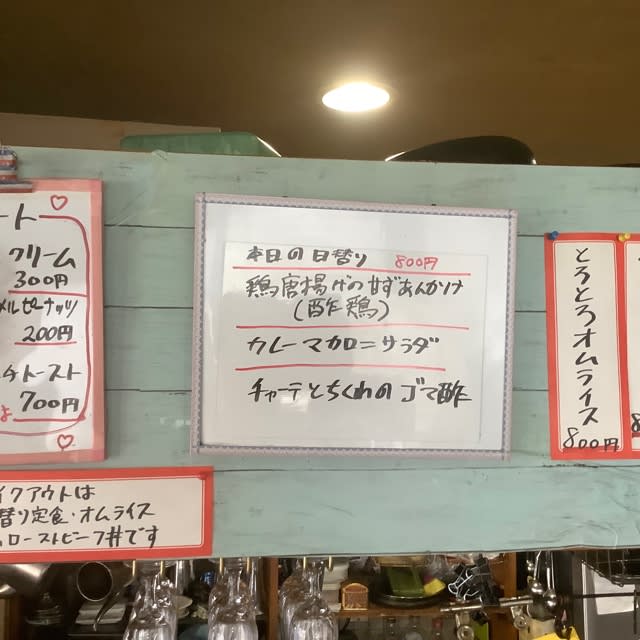 ート
クリーム
300円
メルピーナッツ
200円
チトースト
700円
本日の日替り 800円
鶏唐揚げの甘ずあんかけ
(酢鶏)
カレーマカロニサラダ
チャーテとちくわのゴマ酢
とろとろオムライス
800円
イクアウトは
替り定食・オムライス
ローストビーフ丼です